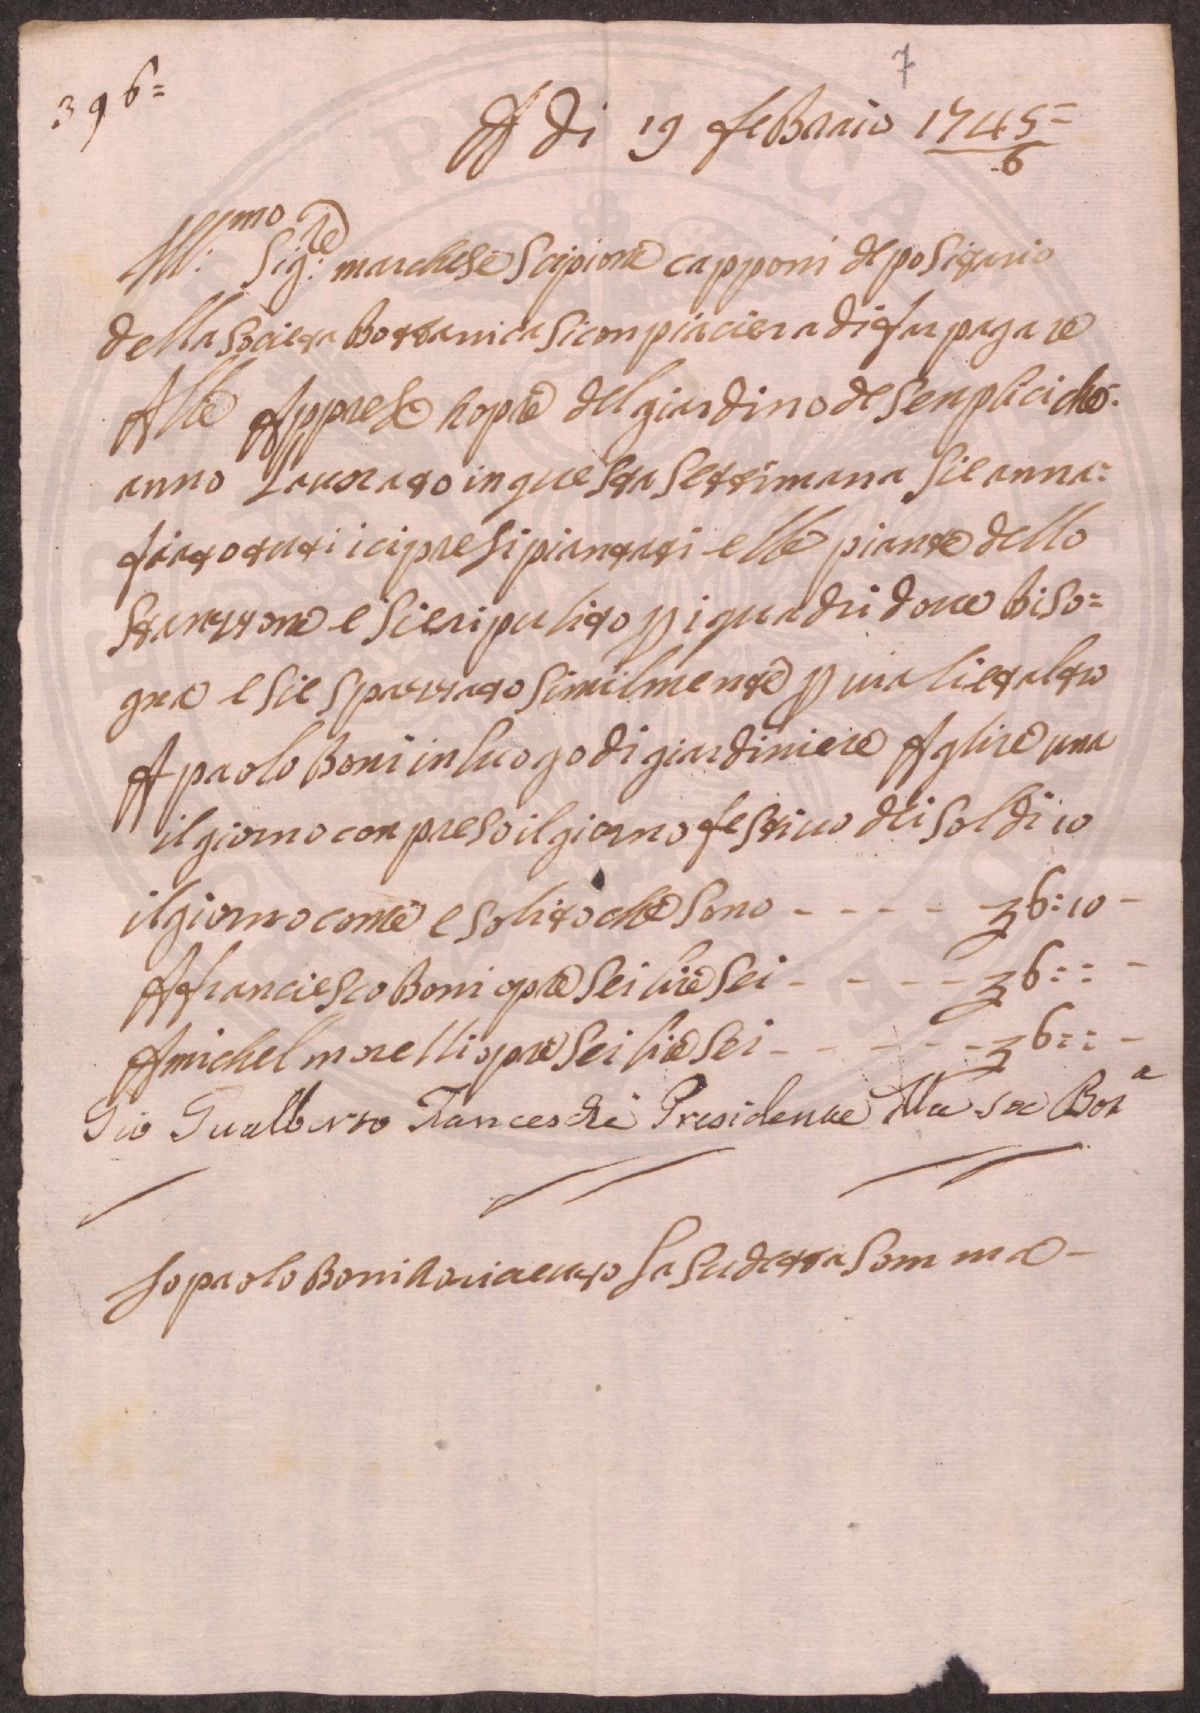 396=
7
A di 19 febbraio 1745=
6
Ill:mo Sig:re marchese Scipione capponi depositario
della Societa Bottanica si conpiaciera di far pagare
Alle Apprese hopre del giardino de Senplici che:
anno Lauorato in questa Settimana Sie anna=
fiato tuti i cipresi piantati e lle piante dello
Stanzzone e Sie ripulito p i quadri doue biso=
gna e Sie Spazzato Similmente p uia lietaltro
A paolo Boni in luogo di giardiniere A lire una
il giorno conpreso il giorno festiuo dei Soldi 10
il giorno come e solito che Sono - - - - - 6:10 -
A franciesco Boni opre Sei lire Sei - - - - 6:: -
A michel morelli opre Sei lire Sei - - - - - 6:: -
Gio Gualberto Franceschi Presidente della Soc Bota
Io paolo Boni ho riceuuto La Sudetta Somma -